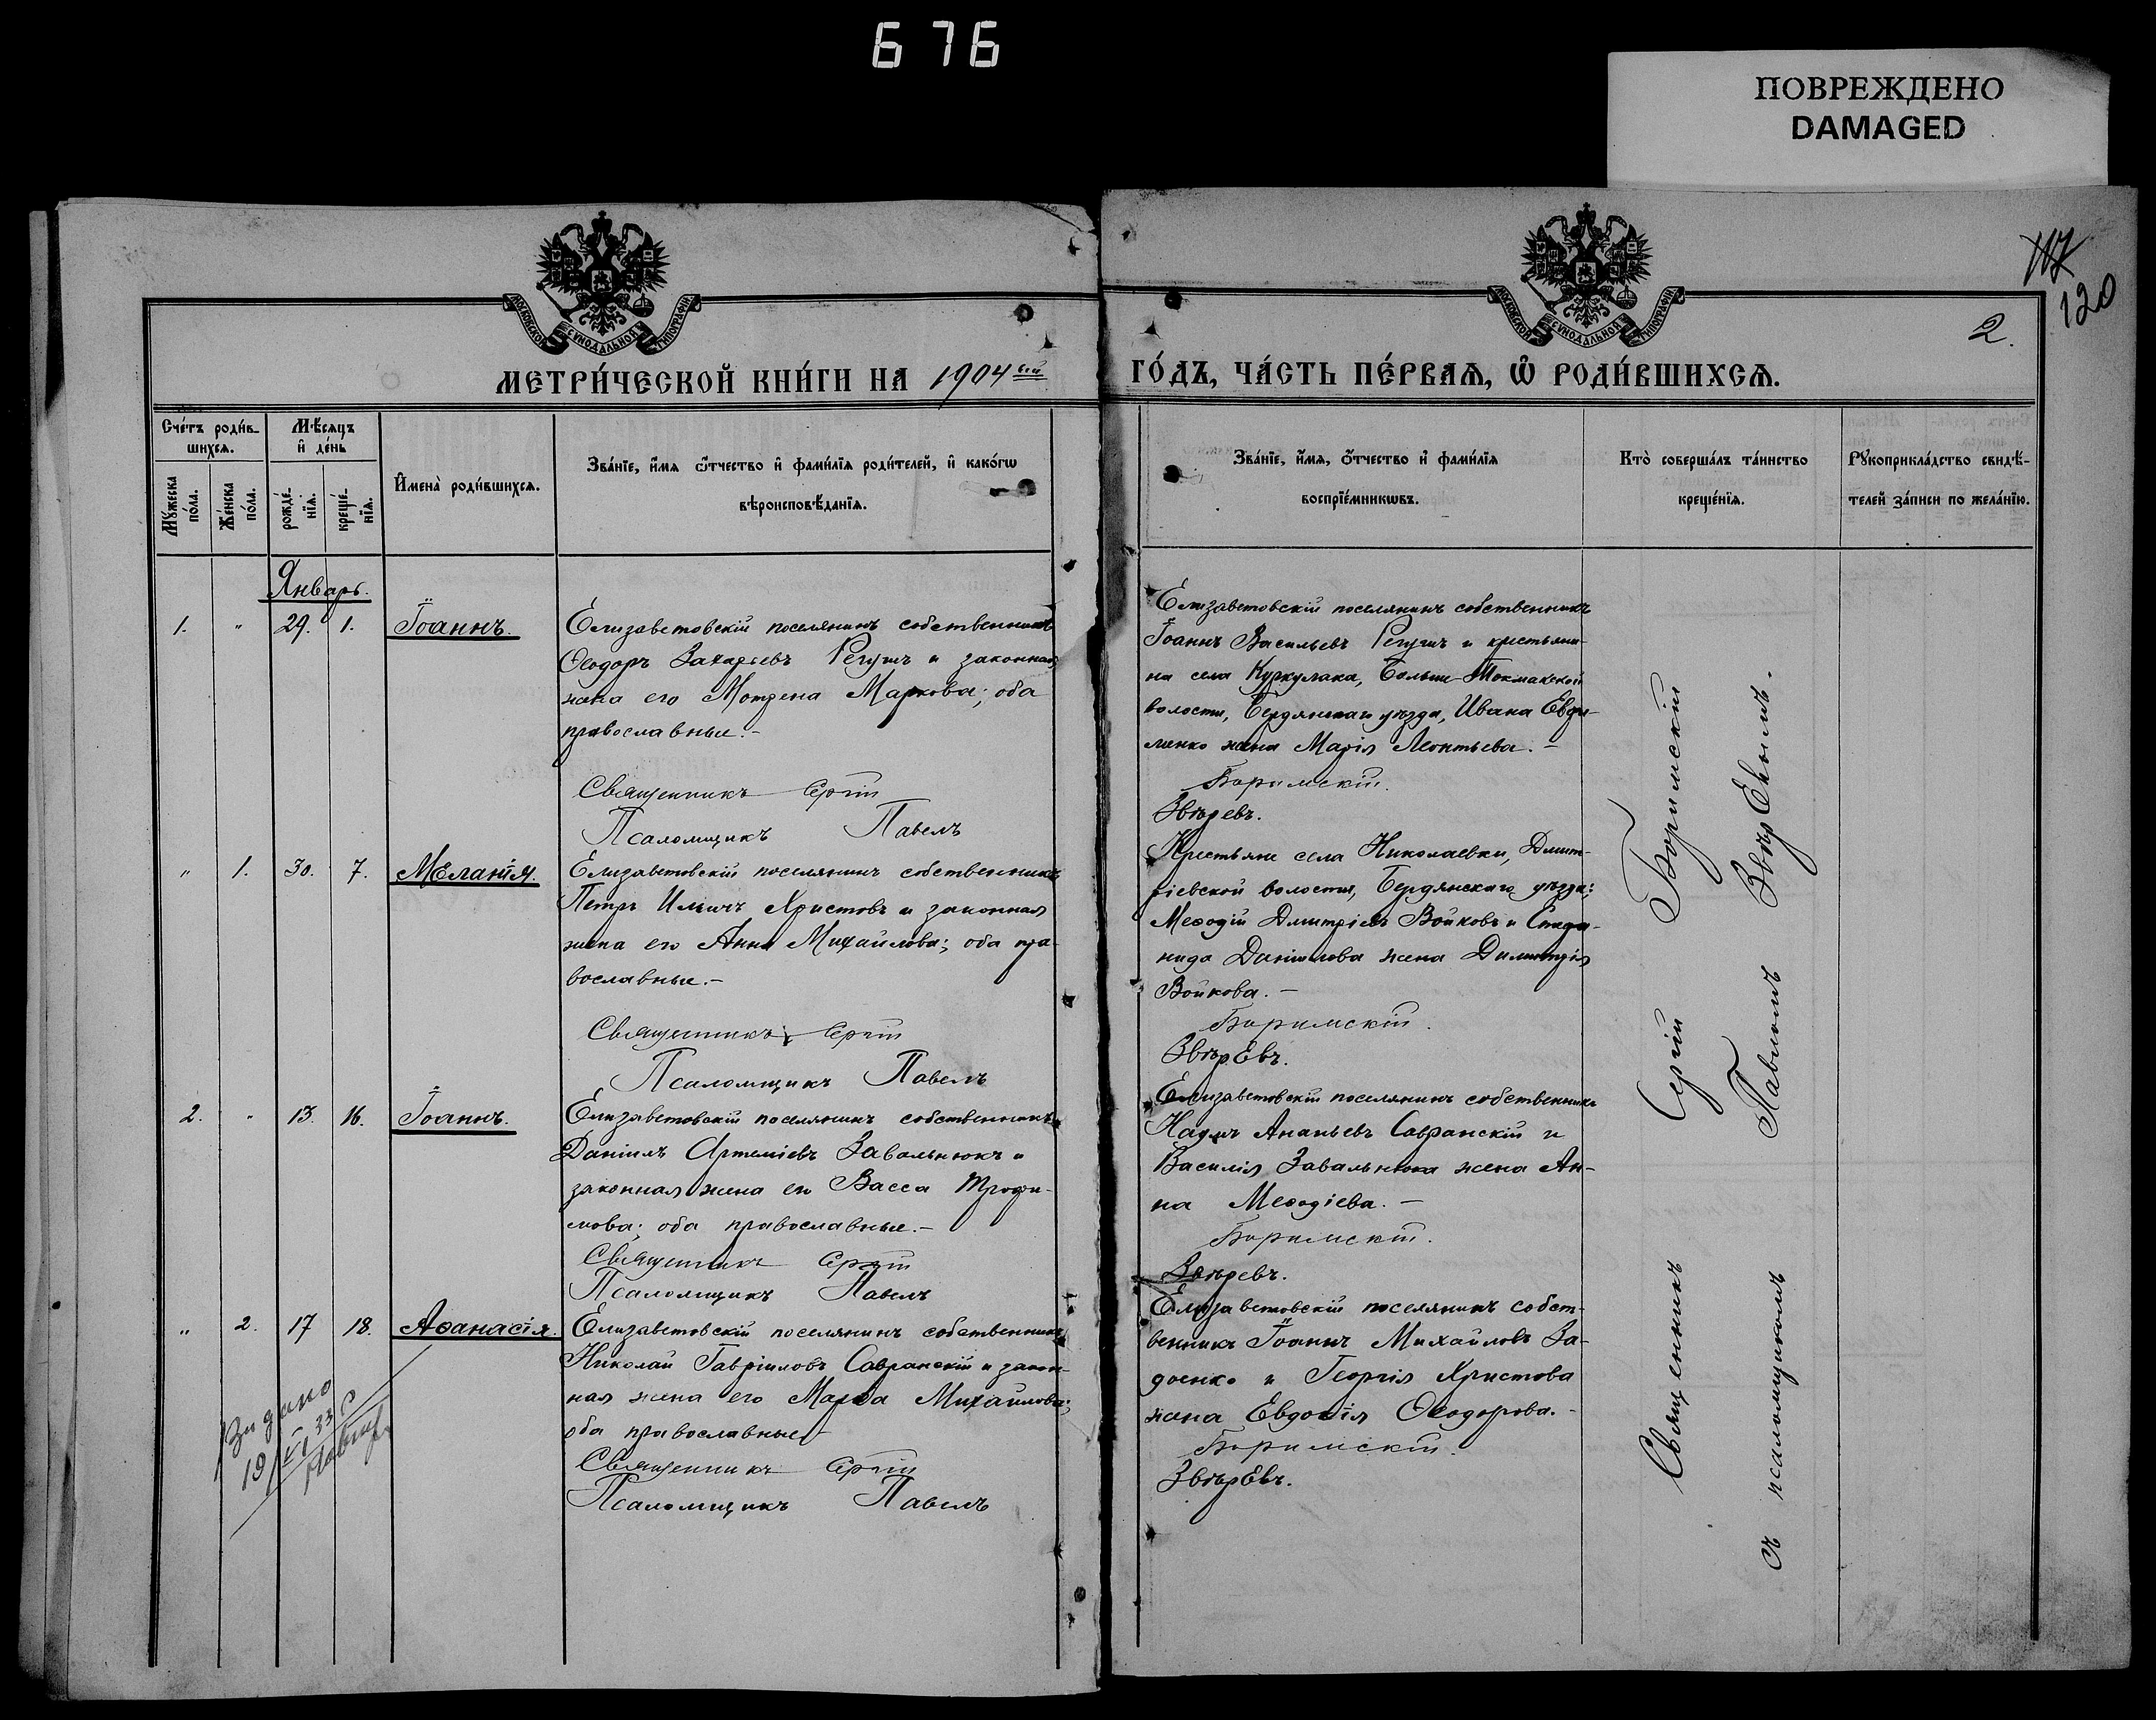 676
ПОВРЕЖДЕНО
DAMAGED
МОСКОВСКОЙ СѴНОДАЛЬНОЙ ТИПОГРАФІИ
МОСКОВСКОЙ СѴНОДАЛЬНОЙ ТИПОГРАФІИ
120
2.
МЕТРИ́ЧЕСКОЙ КНИ́ГИ НА 1904ый
ГО́ДЪ, ЧА́СТЬ ПЕ́РВАѦ, Ѽ РОДИ́ВШИХСѦ.
Сче́тъ роди́в-
шихсѧ.
Мѣ́сяцъ
и҆ де́нь
Мꙋ́жеска
по́ла.
Же́нска
по́ла.
рожде́-
нїѧ.
креще́-
нїѧ.
И҆мена̀ роди́вшихсѧ.
Зва́нїе, и҆́мѧ ѻ҆́тчество и҆ фами́лїѧ роди́телей, и҆ како́гѡ
вѣроисповѣ́данїѧ.
Зва́нїе, и҆́мѧ, ѻ҆́тчество и҆ фами́лїѧ
воспрїе́мникѡвъ.
Кто̀ соверша́лъ та́инство
креще́нїѧ.
Рꙋкоприкла́дство свидѣ́-
телей за́писи по жела́нїю.
Январь.
1. " 29. 1. Іоаннъ.
Елизаветовскій поселянинъ собственникъ
Ѳеодоръ Захарьевъ Регушъ и законная
жена его Мотрена Маркова; оба
православные.-
Священникъ Сергій
Псаломщикъ Павелъ
Елизаветовскій поселянинъ собственникъ
Іоаннъ Васильевъ Регушъ и крестьяни-
на села Куркулака, Больше-Токмакской
волости, Бердянскаго уѣзда, Ивана Евфи-
менко жена Марія Леонтьева.-
Боримскій.
Звѣревъ.
" 1. 30. 7. Меланія.
Елизаветовскій поселянинъ собственникъ
Петръ Ильичъ Христовъ и законная
жена его Анна Михайлова; оба пра-
вославные.-
Священникъ Сергій
Псаломщикъ Павелъ
Крестьяне села Николаевки, Дмит-
ріевской волости, Бердянскаго уѣзда:
Меѳодій Дмитріевъ Войковъ и Степа-
нида Даніилова жена Димитрія
Войкова.-
Боримскій.
Звѣревъ.
2. " 13. 16. Іоаннъ.
Елизаветовскій поселянинъ собственникъ
Даніилъ Артеміевъ Завальнюкъ и
законная жена его Васса Трофи-
мова; оба православные.-
Священникъ Сергій
Псаломщикъ Павелъ
Елизаветовскій поселянинъ собственникъ
Ананьевъ Савранскій и
Василія Завальнюка жена Ан-
на Меѳодіева.-
Боримскій.
Звѣревъ.
" 2. 17 18. Аѳанасія.
Елизаветовскій поселянинъ собственникъ
Николай Гавріиловъ Савранскій и закон-
ная жена его Марѳа Михайлова;
оба православные-
Священникъ Сергій
Псаломщикъ Павелъ
Елизаветовскій поселянинъ собст-
венникъ Іоаннъ Михайловъ За-
доенко и Георгія Христова
жена Евдокія Ѳеодорова.-
Боримскій.
Звѣревъ.
Видано
19 VI 33 р
Священникъ Сергій Боримскій
съ псаломщикомъ Павломъ Звѣревымъ.